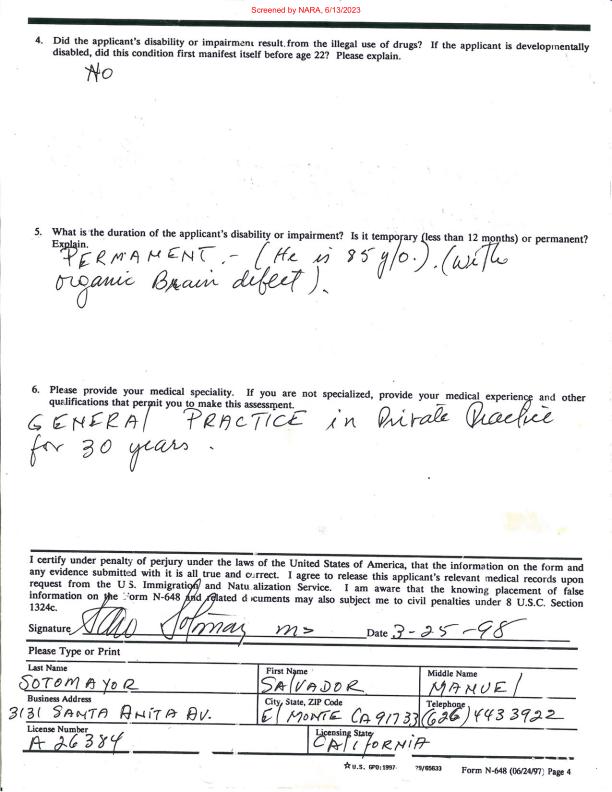 Screened by NARA, 6/13/2023
4. Did the applicant's disability or impairment result from the illegal use of drugs? If the applicant is developmentally
disabled, did this condition first manifest itself before age 22? Please explain.
No
5. What is the duration of the applicant's disability or impairment? Is it temporary (less than 12 months) or permanent?
Explain.
PERMAMENT. - (He is 85 y/o.). (with
organic Brain defect).
6. Please provide your medical speciality. If you are not specialized, provide your medical experience and other
qualifications that permit you to make this assessment.
GENERAL PRACTICE in Private Practice
for 30 years.
I certify under penalty of perjury under the laws of the United States of America, that the information on the form and
any evidence submitted with it is all true and correct. I agree to release this applicant's relevant medical records upon
request from the U.S. Immigration and Natu alization Service. I am aware that the knowing placement of false
information on the Form N-648 and related documents may also subject me to civil penalties under 8 U.S.C. Section
1324c.
Signature MD Date 3-25-98
Please Type or Print
Last Name First Name Middle Name
SOTOMAYOR SALVADOR MANUEL
Business Address City, State, ZIP Code Telephone
3131 SANTA ANITA AV. El MONTE CA 91733 (626) 4433922
License Number Licensing State
A 26384 CALIFORNIA
☆U.S. GPO:1997- 79/65633 Form N-648 (06/24/97) Page 4